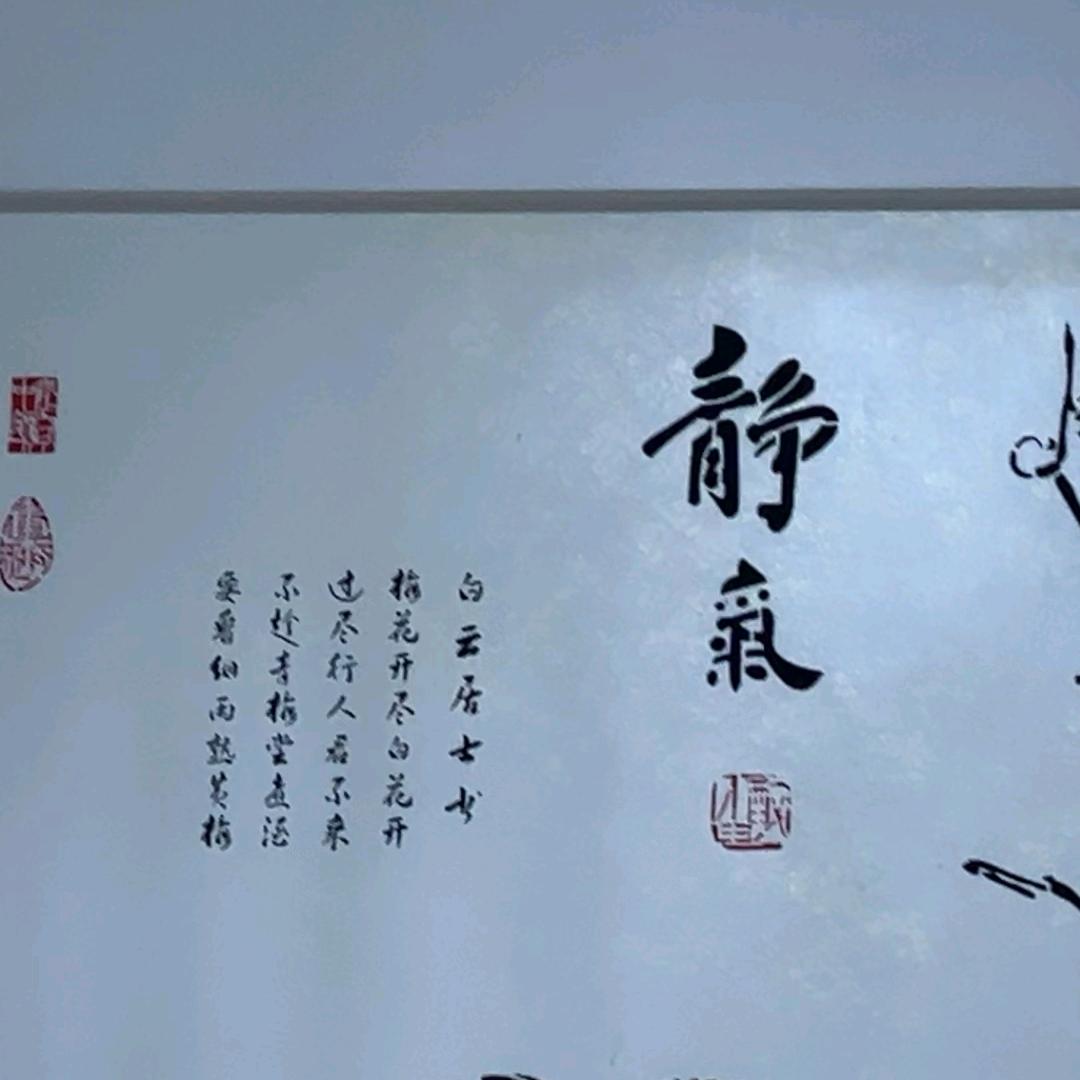 静氣
白云居士书
梅花开尽白花开
过尽行人君不来
不趁青梅尝煮酒
要看细雨熟黄梅